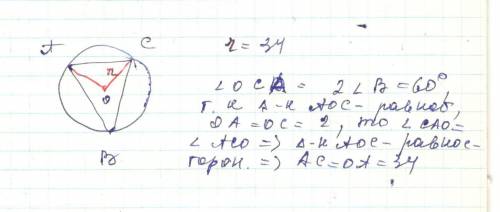 A
C
r
O
B
r = 34
∠OCA = 2∠B = 60°,
т. к Δ-к AOC - равноб,
OA = OC = r, то ∠CAO =
∠ACO => Δ-к AOC - равнос-
торон. => AC = OA = 34